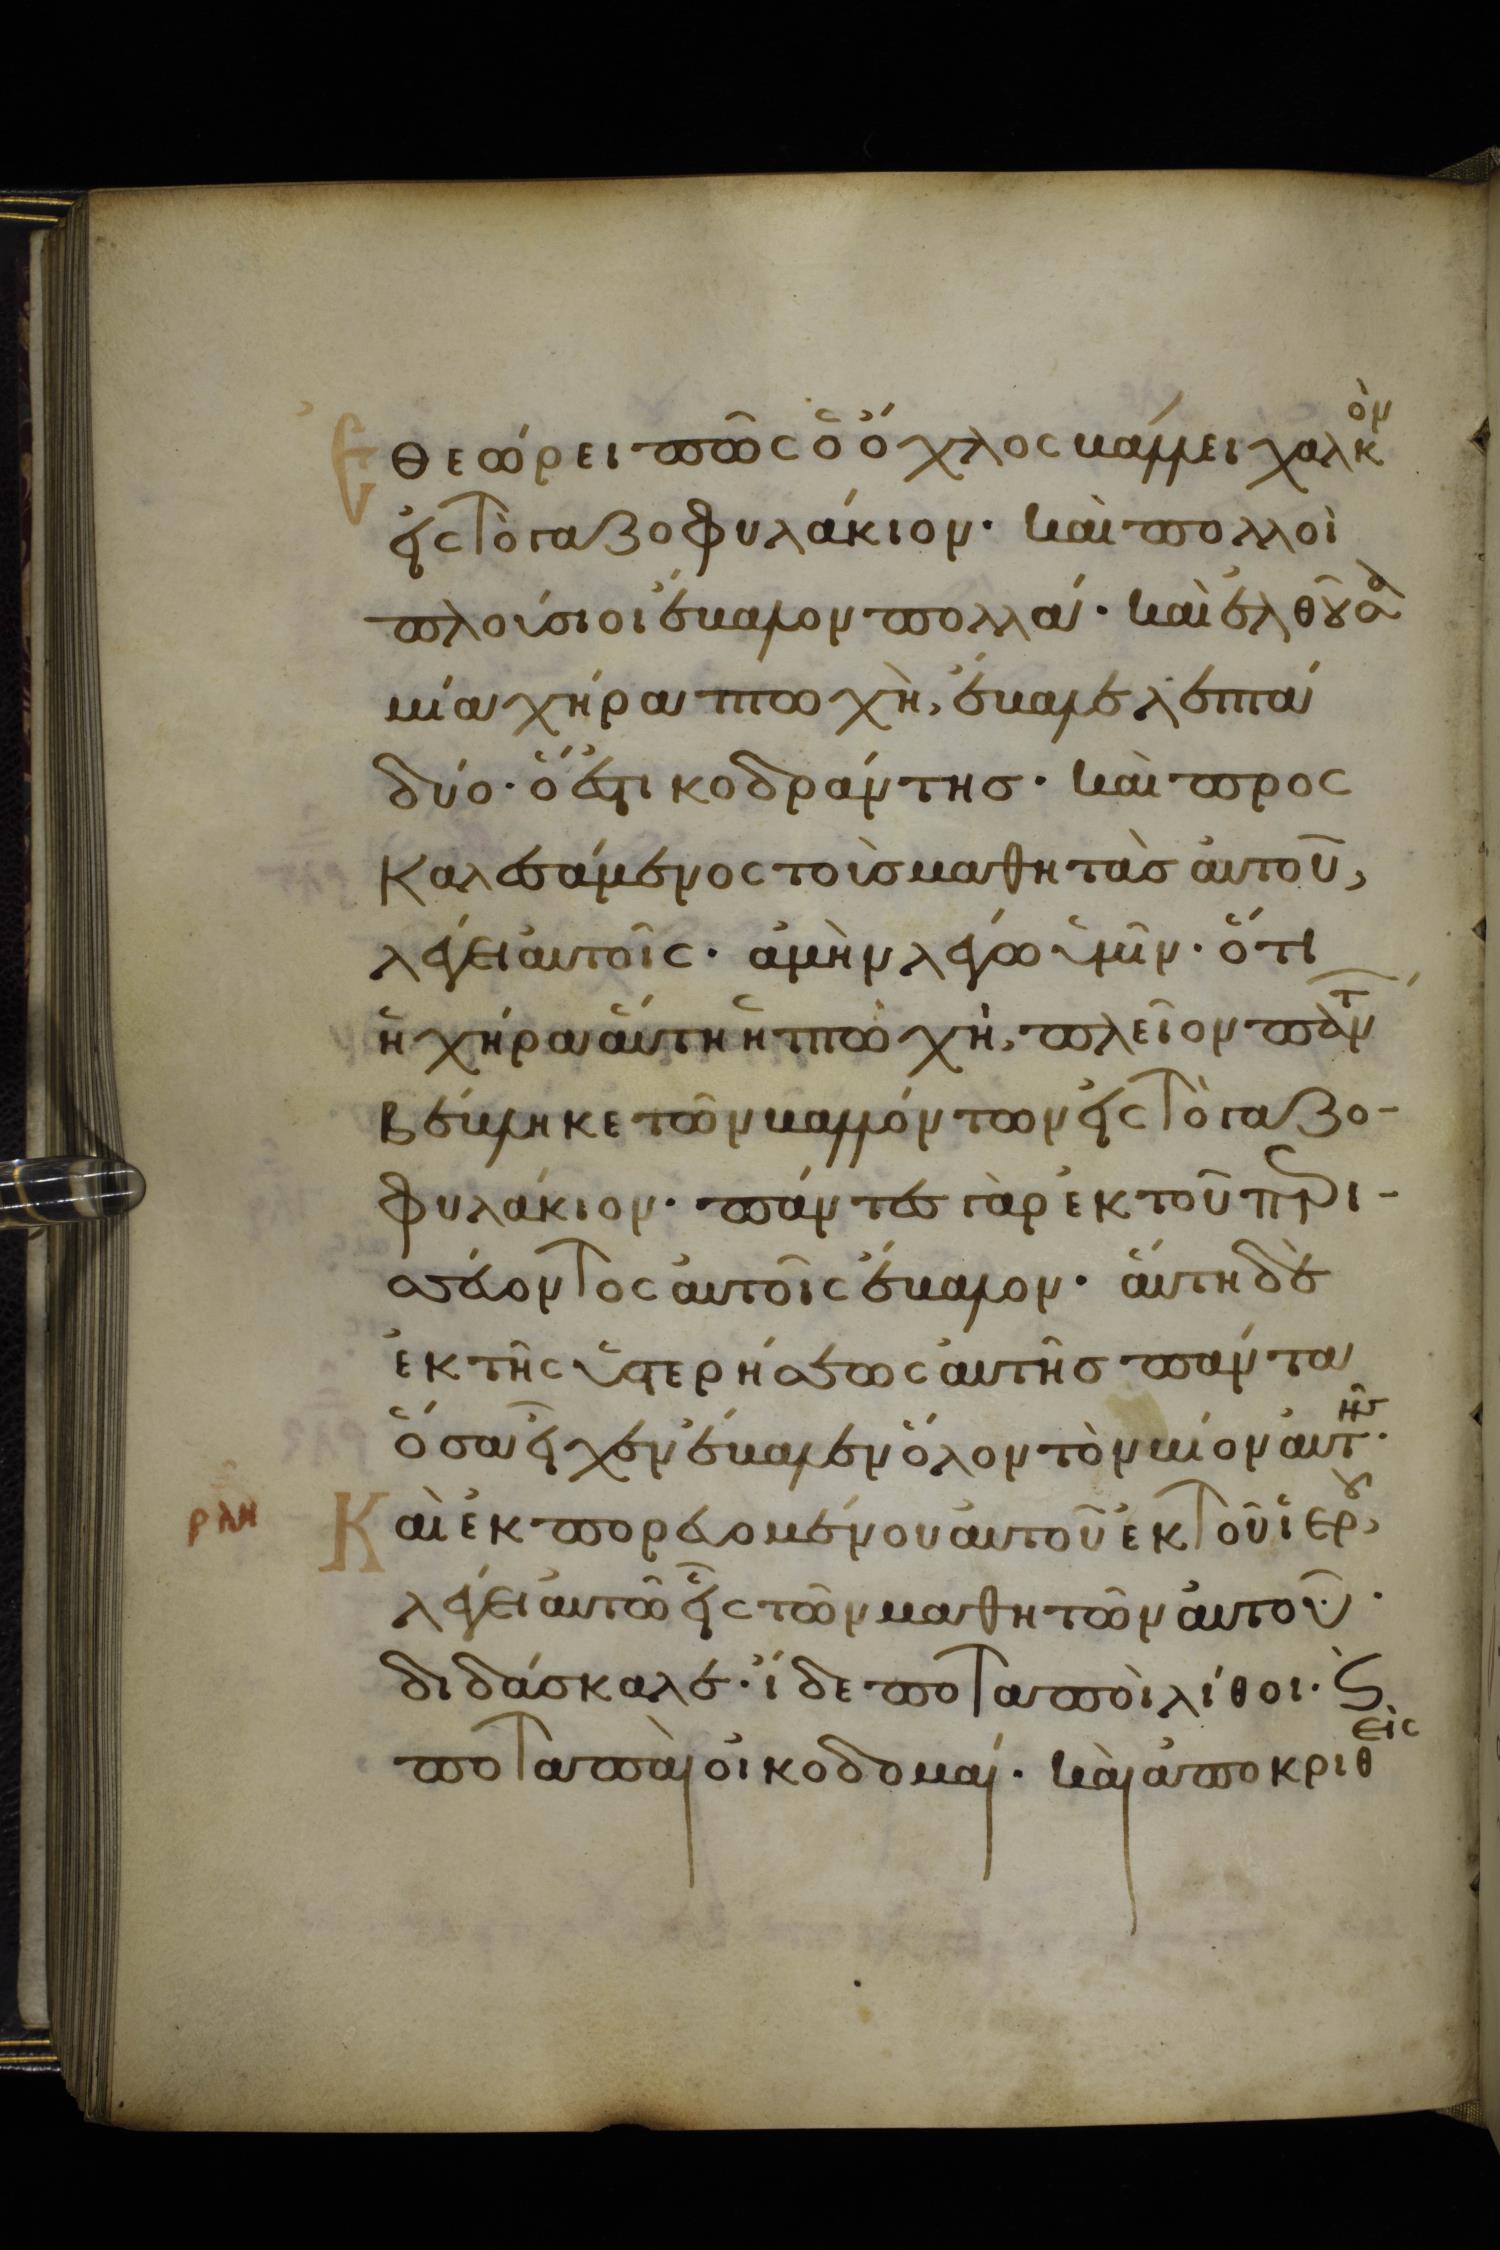 Ἐθεώρει πῶς ὁ ὄχλος βάλλει χαλκὸν
εἰς τὸ γαζοφυλάκιον· καὶ πολλοὶ
πλούσιοι ἔβαλον πολλά· καὶ ἐλθοῦσα
μία χήρα πτωχὴ, ἔβαλε λεπτὰ
δύο· ὅ ἐστι κοδράντησ· καὶ προς
καλεσάμενος τοὺσ μαθητὰσ αὐτοῦ,
λέγει αὐτοῖς· ἀμὴν λέγω ὑμῖν· ὅτι
ἡ χήρα αὕτη ἡ πτωχὴ, πλεῖον πάντων
βέβληκε τῶν βαλλόντων εἰς τὸ γαζο-
φυλάκιον· πάντες γὰρ ἐκ τοῦ περι-
σσεύοντος αὐτοῖς ἔβαλον· αὕτη δὲ
ἐκ τῆς ὑστερήσεως αὐτῆσ πάντα
ὅσα εἶχεν ἔβαλεν ὅλον τὸν βίον αὐτῆσ·
ρλη Καὶ ἐκπορευομένου αὐτοῦ ἐκ τοῦ ἱεροῦ,
λέγει αὐτῶ εἷς τῶν μαθητῶν αὐτοῦ·
διδάσκαλε· ἴδε ποταποὶ λίθοι· καὶ
ποταπαὶ οἰκοδομαί· καὶ ἀποκριθεὶς